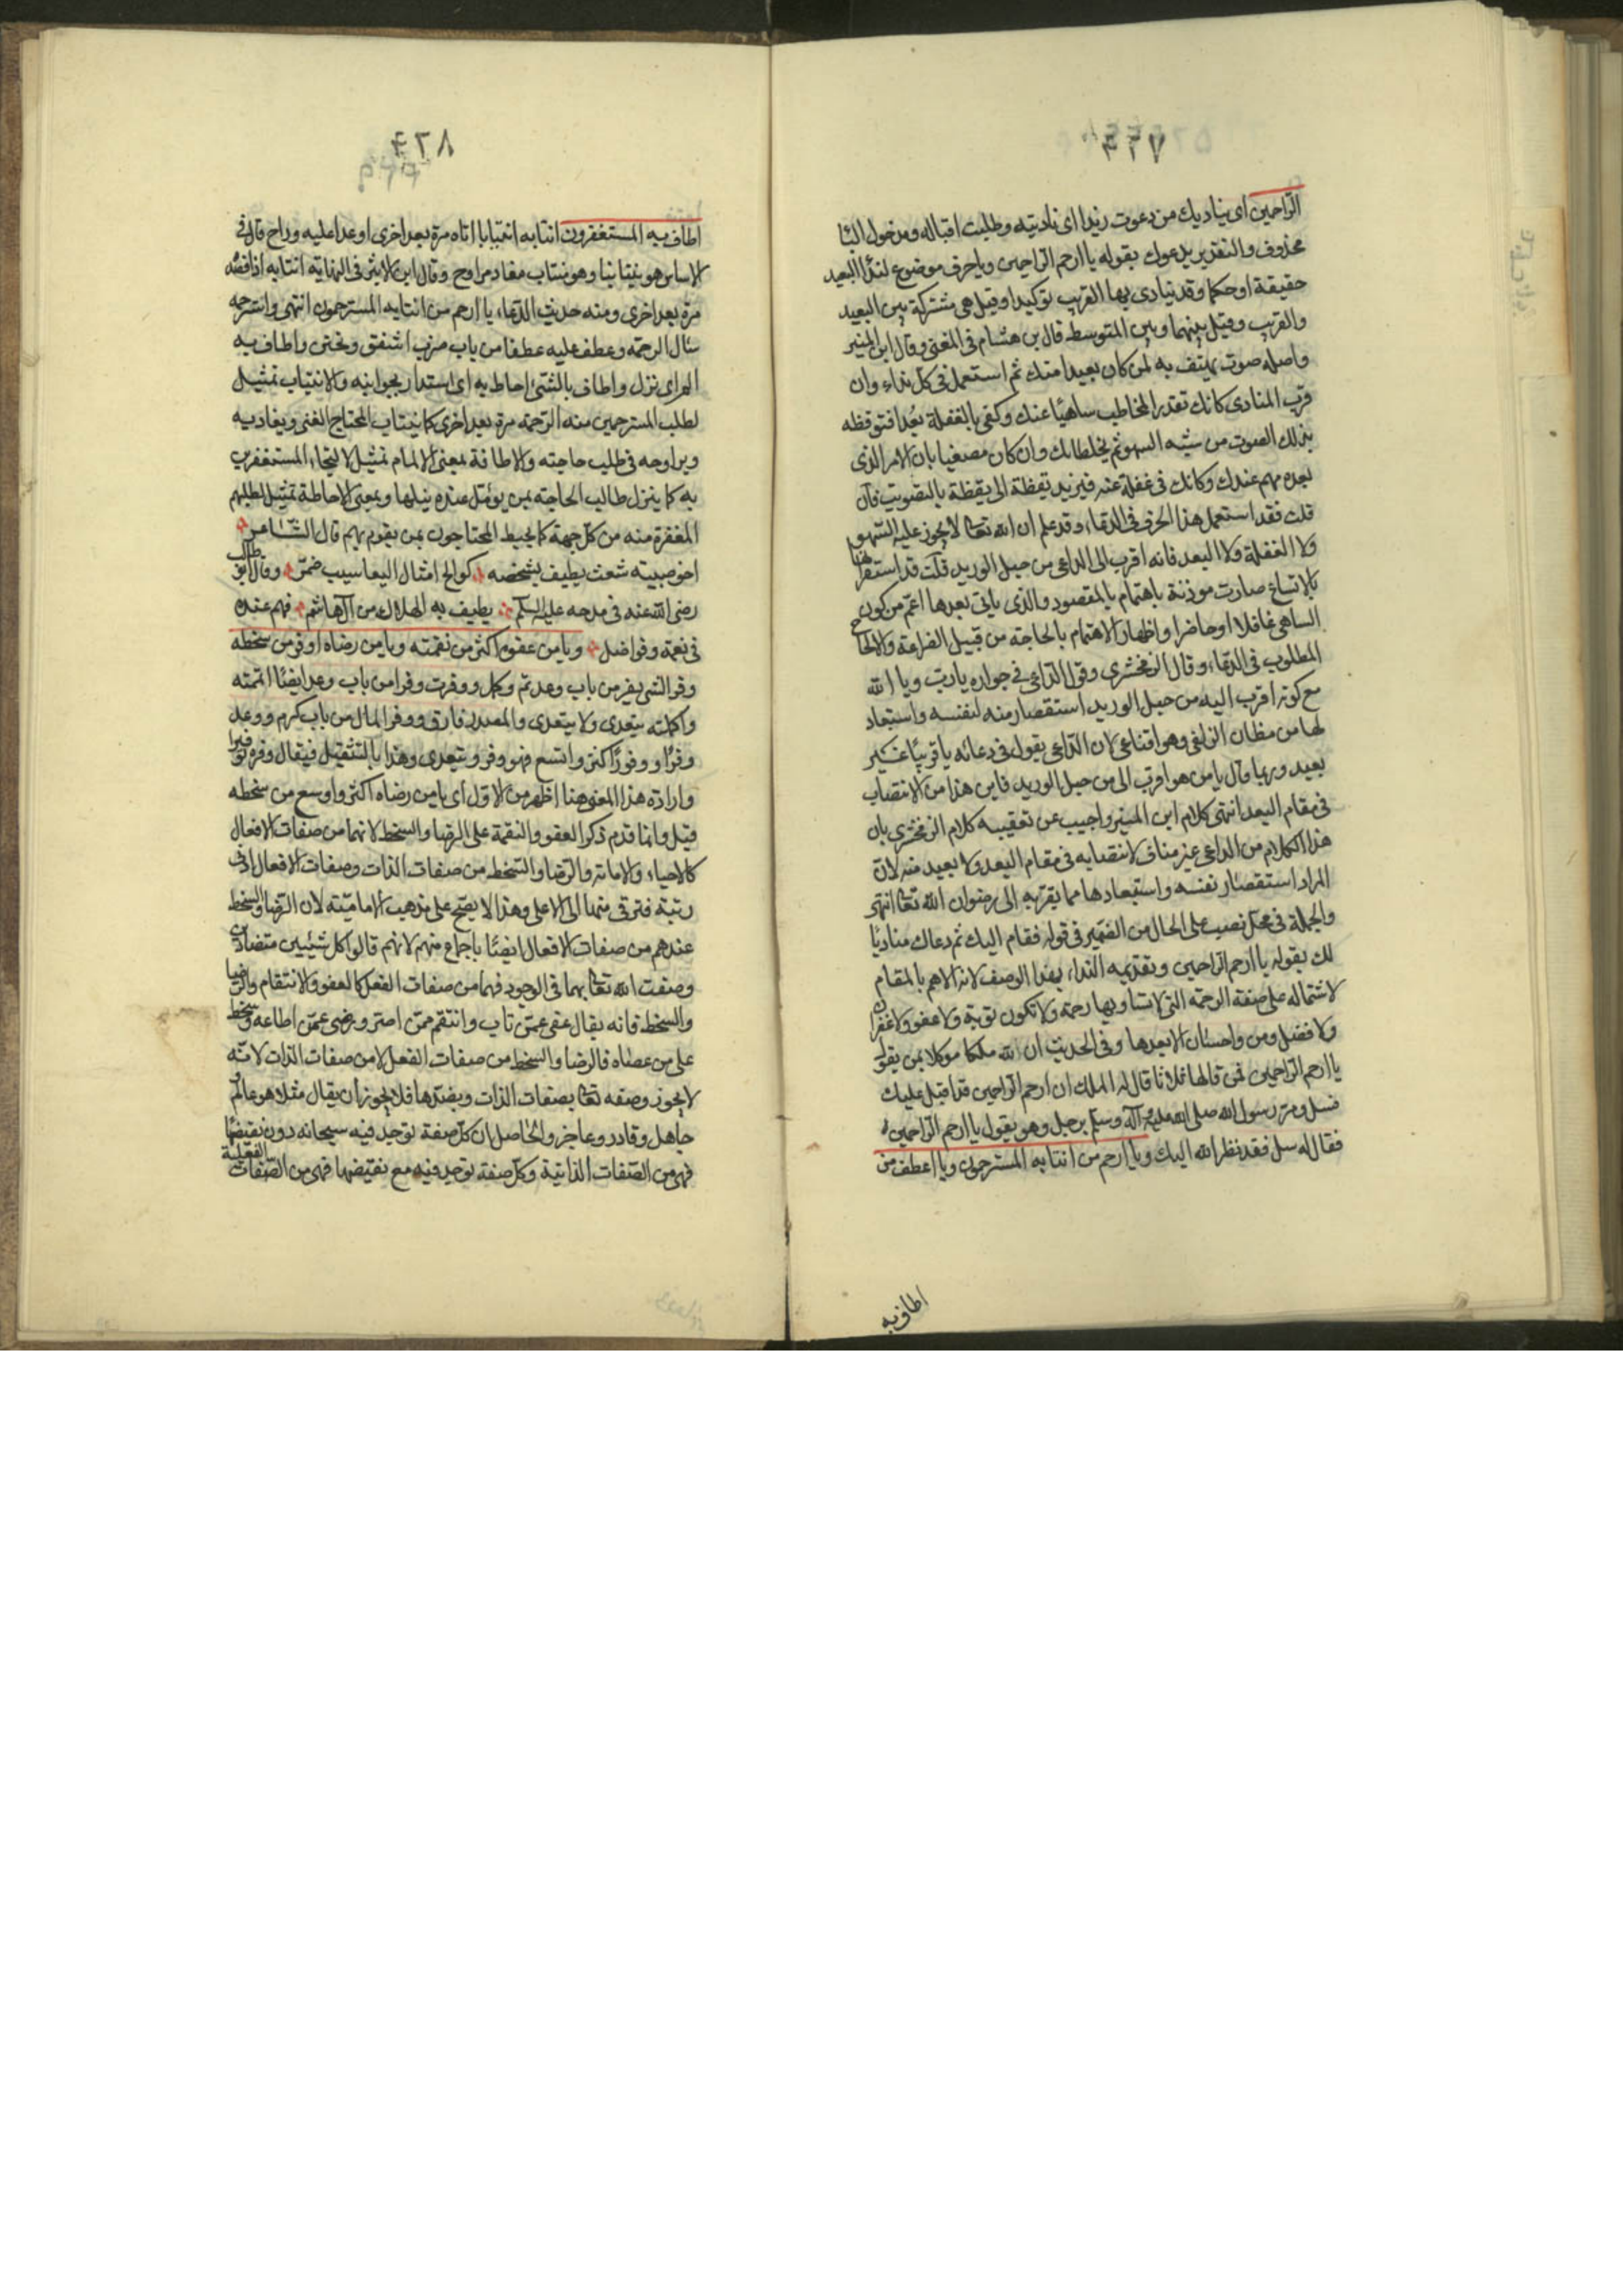 ٤٢٧
الرّاحمين اى يناديك من دعوت زيدا اى ناديته وطلبت اقباله ومدخول الباء
محذوف والتقدير يدعوك بقوله يا ارحم الراحمين ويا حرف موضوع لنداء البعيد
حقيقة او حكما وقد ينادى بها القريب توكيدا وقيل هى مشتركة بين البعيد
والقريب وقيل بينهما وبين المتوسط قال بن هشام فى المغنى وقال ابن المنير
واصله صوت يهتف به لمن كان بعيدا منك ثم استعمل فى كل نداء وان
قرب المنادى كانك تقدر المخاطب ساهيًا عنك وكفى بالغفلة بُعدا فتوقظه
بذلك الصوت من سنة السهو ثم يخاطبك وان كان مصغيا بان الامر الذى
بعده مهم عندك وكانك فى غفلة عنه فيزيد تيقظة الى يقظة بالتصويت فان
قلت فقد استعمل هذا الحرف فى الدعاء وقد علم ان الله تعا لا يجوز عليه السّهو
ولا الغفلة ولا البعد فانه اقرب الى الداعى من حبل الوريد قلت قد استقر انها
بالاتساع صارت موذنة باهتمام بالمقصود والذى ياتى بعدها اعمّ من كون
الساهى غافلا او حاضرا واظهار الاهتمام بالحاجة من قبيل الضراعة والالحاح
المطلوب فى الدعاء وقال الزمخشرى وقول الدّاعى فى جواره يا ربّ ويا الله
مع كونه اقرب اليه من حبل الوريد استقصار منه لنفسه واستبعاد
لها من مظان الزلفى وهو اقناعى لان الدّاعى يقول فى دعائه يا قريبًا غير
بعيد وربما قال يا من هو اقرب الى من حبل الوريد فاين هذا من الانتصاب
فى مقام البعد انتهى كلام ابن المنير واجيب عن تعقيبه كلام الزمخشرى بان
هذا الكلام من الداعى غير مناف لانتصابه فى مقام البعد ولا بعيد منه لان
المراد استقصار نفسه واستبعادها مما يقرّبه الى رضوان الله تعا انتهى
والجملة فى محل نصب على الحال من الضمير فى قوله فقام اليك ثم دعاك مناديًا
لك بقوله يا ارحم الراحمين وتقديمه النداء بهذا الوصف لانه الاهم بالمقام
لاشتماله على صفة الرحمة التى لا تساويها رحمة ولا تكون توبة ولا عفو ولا غفران
ولا فضل ومن واحسان الا بعدها وفى الحديث ان لله ملكا موكلا بمن يقول
يا ارحم الراحمين فمن قالها ثلاثا قال له الملك ان ارحم الراحمين قد اقبل عليك
فسل ومرّ رسول الله صلى الله عليه وآله وسلم برجل وهو يقول يا ارحم الراحمين
فقال له سل فقد نظر الله اليك ويا ارحم من انتابه المسترحمون ويا اعطف من
اطاف به
٤٢٨
اطاف به المستغفرون انتابه انتيابا اتاه مرة بعد اخرى او غدا عليه وراح قال فى
الاساس هو ينتابنا وهو منتاب مغاد مراوح وقال ابن الاثير فى النهاية انتابه اذا قصده
مرة بعد اخرى ومنه حديث الدعاء يا ارحم من انتابه المسترحمون انتهى واسترحمه
سئال الرحمة وعطف عليه عطفا من باب ضرب اشفق وتحنن واطاف به
الم اى نزل واطاف بالشئ احاط به اى استدار بجوانبه والانتياب تمثيل
لطلب المسترحمين منه الرّحمة مرة بعد اخرى كما ينتاب المحتاج الغنى ويغاديه
ويراوحه فى طلب حاجته والاطافة بمعنى الالمام تمثيل لالتجاء المستغفرين
به كما ينزل طالب الحاجة بمن يؤمّل عنده نيلها وبمعنى الاحاطة تمثيل لطلبهم
المغفرة منه من كل جهة كما يحيط المحتاجون بمن يقوم بهم قال الشاعر
اخو صبية شعث يطيف بشخصه كوالح امثال اليعاسيب ضمّر وقال ابو طالب
رضى الله عنه فى مدحه عليه السّلم يطيف به الهلاك من آل هاشم فهم عنده
فى نعمة وفواضل ويا من عفوه اكثر من نقمته ويا من رضاه اوفر من سخطه
وفر الشى يفر من باب وعد تم وكمل ووفرت وفرا من باب وعد ايضًا اتممته
واكملته يتعدى ولا يتعدى والمصدر فارق ووفر المال من باب كرم ووعد
وفرًا ووفورًا كثر واتسع فهو وفر ويتعدى وهذا بالتثقيل فيقال وفره توفيرا
وارادة هذا المعنى هنا اظهر من الاول اى يا من رضاه اكثر واوسع من سخطه
قيل وانما قدم ذكر العفو والنقمة على الرضا والسخط لانهما من صفات الافعال
كالاحياء والاماتة والرّضا والسّخط من صفات الذات وصفات الافعال ادنى
رتبة فترقى منها الى الاعلى وهذا لا يصّح على مذهب الامامّية لان الرّضا والسّخط
عندهم من صفات الافعال ايضًا باجماع منهم لانهم قالوا كل شيئين متضادّين
وصفت الله تعا بهما فى الوجود فهما من صفات الفعل كالعفو والانتقام والرضا
والسخط فانه يقال عفى عمّن تاب وانتقم ممّن اصرّ ورضى عمّن اطاعه وسخط
على من عصاه فالرضا والسخط من صفات الفعل لا من صفات الذات لانّه
لا يجوز وصفه تعا بصفات الذات وبضدّها فلا يجوز ان يقال مثلا هو عالم
جاهل وقادر وعاجز والحاصل ان كل صفة توجد فيه سبحانه دون نقيضها
فهى من الصّفات الذاتية وكل صفة توجد فيه مع نقيضها فهى من الصّفات الفعليّة